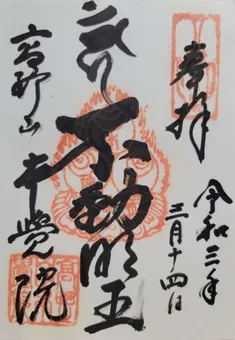 奉拝
令和三年
三月十四日
不動明王
高野山
本覺院